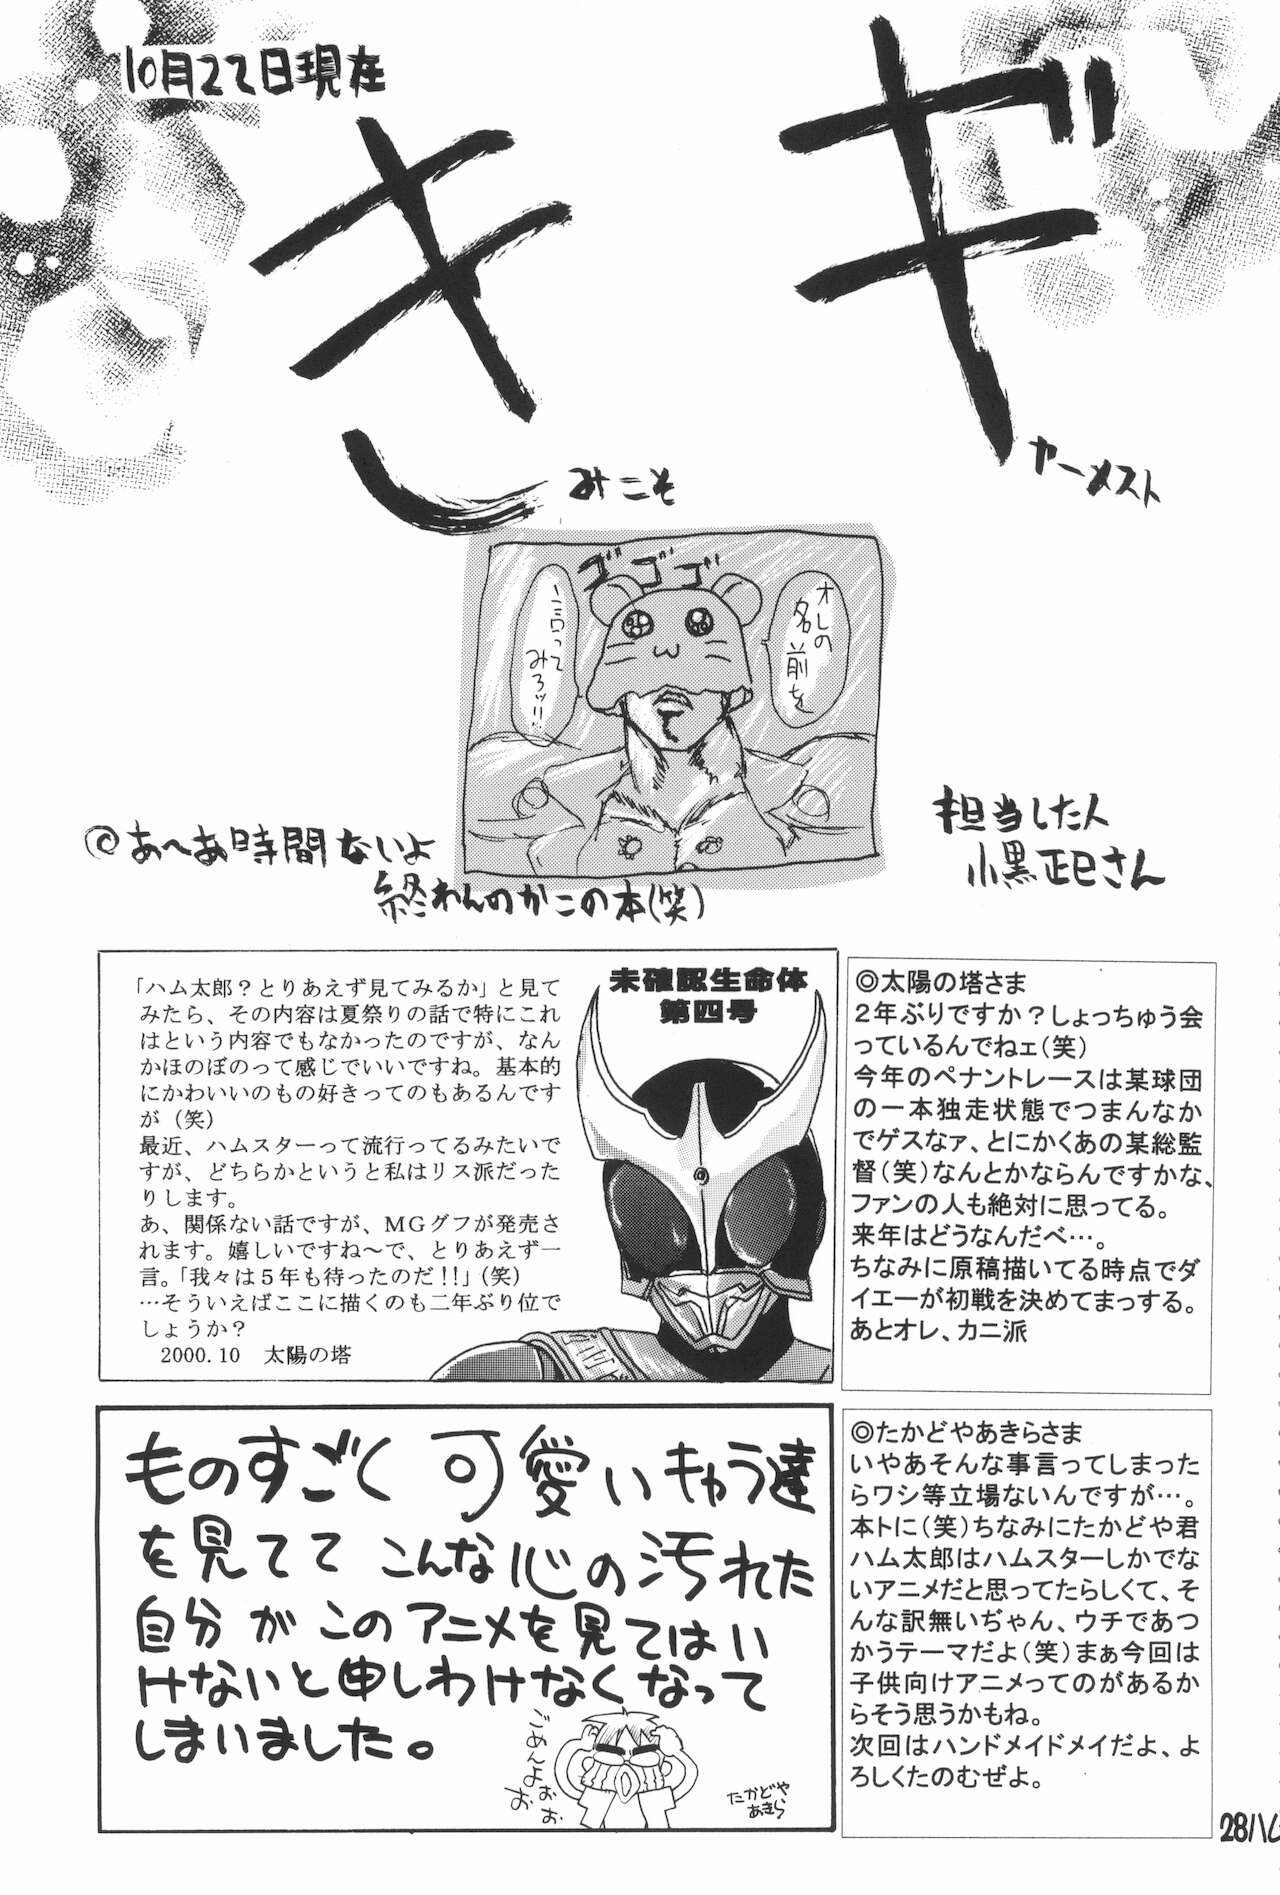 10月22日現在
ギ
キ
し
ヤーメスト
みこそ
ゴゴゴ
オレの
名前を
言って
みろッ!!
担当した人
小黒正巳さん
◎あ〜あ時間ないよ
終わんのかこの本(笑)
「ハム太郎？とりあえず見てみるか」と見て
みたら、その内容は夏祭りの話で特にこれ
はという内容でもなかったのですが、なん
かほのぼのって感じでいいですね。基本的
にかわいいのもの好きってのもあるんです
が（笑）
最近、ハムスターって流行ってるみたいで
すが、どちらかというと私はリス派だった
りします。
あ、関係ない話ですが、ＭＧグフが発売さ
れます。嬉しいですね〜で、とりあえず一
言。「我々は５年も待ったのだ!!」（笑）
…そういえばここに描くのも二年ぶり位で
しょうか？
2000.10　太陽の塔
未確認生命体
第四号
◎太陽の塔さま
２年ぶりですか？しょっちゅう会
っているんでねェ（笑）
今年のペナントレースは某球団
の一本独走状態でつまんなか
でゲスなァ、とにかくあの某総監
督（笑）なんとかならんですかな、
ファンの人も絶対に思ってる。
来年はどうなんだべ…。
ちなみに原稿描いてる時点でダ
イエーが初戦を決めてまっする。
あとオレ、カニ派
ものすごく可愛いキャラ達
を見てて こんな心の汚れた
自分が このアニメを見てはい
けないと申しわけなくなって
しまいました。
ごめんよぉぉぉ
たかどや
あきら
◎たかどやあきらさま
いやあそんな事言ってしまった
らワシ等立場ないんですが…。
本トに（笑）ちなみにたかどや君
ハム太郎はハムスターしかでな
いアニメだと思ってたらしくて、そ
んな訳無いぢゃん、ウチであつ
かうテーマだよ（笑）まぁ今回は
子供向けアニメってのがあるか
らそう思うかもね。
次回はハンドメイドメイだよ、よ
ろしくたのむぜよ。
28ハム